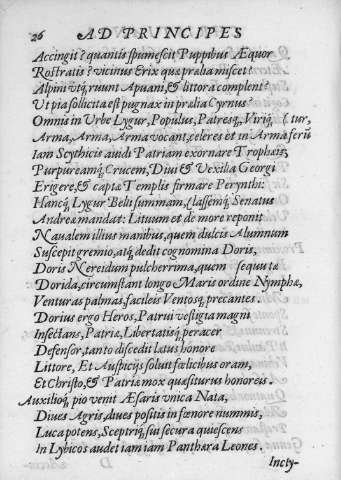 26 AD PRINCIPES
Accingit? quantis spumescit Puppibus Æquor
Rostratis? vicinus Erix quæ prælia miscet?
Alpini utq́; ruunt Apuani, & littora complent?
Ut pia sollicita est pugnax in prælia Cyrnus?
Omnis in Urbe Lygur, Populus, Patresq;, Viriq́; (tur,
Arma, Arma, Arma vocant, celeres et in Arma ferū
Iam Scythicis avidi Patriam exornare Trophæis,
Purpureamq́; Crucem, Divi & Vexilia Georgi
Erigere, & captæ Templis firmare Perynthi:
Hancq́; Lygur Belli summam, Classemq́; Senatus
Andreæ mandat: Lituum et de more reponit
Navalem illius manibus, quem dulcis Alumnum
Suscepit gremio, atq́; dedit cognomina Doris,
Doris Nereidum pulcherrima, quem sequutæ
Dorida, circumstant longo Maris ordine Nymphæ,
Venturas palmas, facileis Ventosq́; precantes.
Dorius ergo Heros, Patrui vestigia magni
Insectans, Patriæ, Libertatisq́; peracer
Defensor, tanto discedit latus honore
Littore, Et Auspicijs soluit fœlicibus oram,
Et Christo, & Patriæ mox quæsiturus honoreis.
Auxilioq́; pio venit Æsaris unica Nata,
Dives Agris, dives positis in fœnore nummis,
Luca potens, Sceptriq́; sui secura quiescens
In Lybicos audet iam iam Panthara Leones.
Incty-